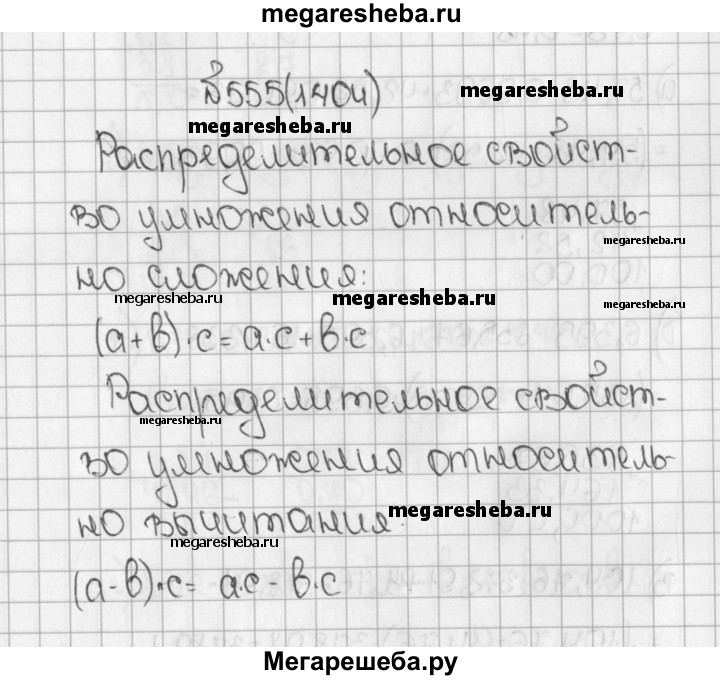 megaresheba.ru
№555(1404)
megaresheba.ru
megaresheba.ru
Распределительное свойст-
во умножения относитель-
megaresheba.ru
но сложения:
megaresheba.ru
megaresheba.ru
megaresheba.ru
(a+b)·c=a·c+b·c
Распределительное свойст-
megaresheba.ru
во умножения относитель-
но вычитания.
megaresheba.ru
megaresheba.ru
(a-b)·c= a·c- b·c
Мегарешеба.ру